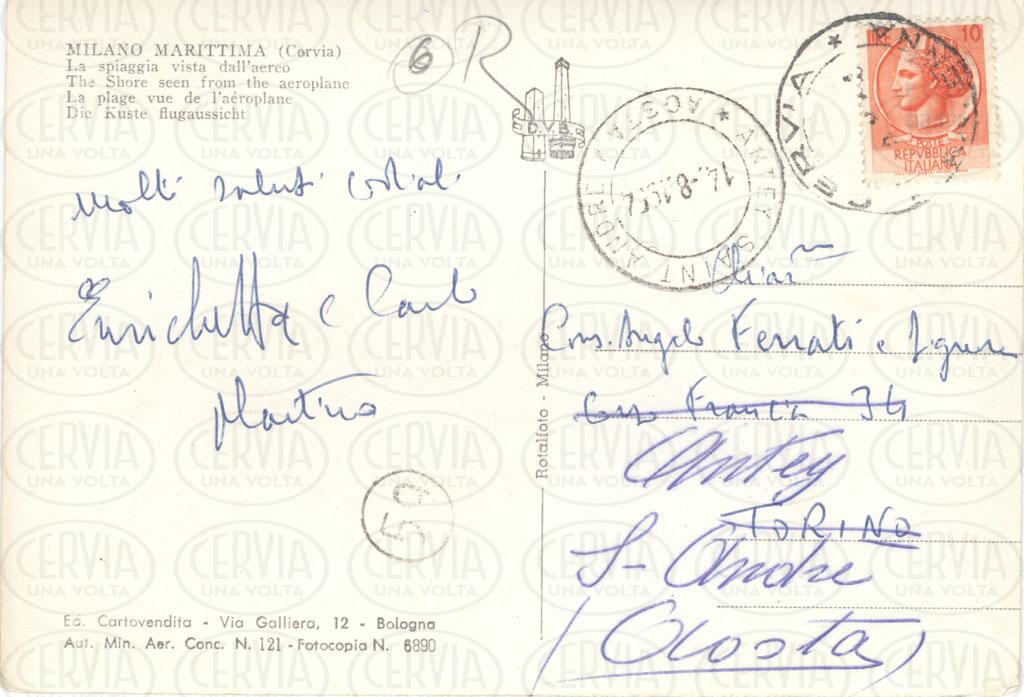 MILANO MARITTIMA (Corvia)
La spiaggia vista dall'aereo
The Shore seen from the aeroplane
La plage vue de l'aéroplane
Die Kuste flugaussicht
6 R
D.V.B.
POSTE
REPVBBLICA
ITALIANA
LIRE 10
CERVIA * RAVENNA
ANTEY SAINT ANDRE * AOSTA
14.-8.1954
Molti saluti cordiali
Enrichetta e Carlo
Martino
50
Rotalfoto - Milano
Cons. Angelo Ferrati e Signora
Corso Francia 34
Antey
TORINO
S- Andre
(Aosta)
Ed. Cartovendita - Via Galliera, 12 - Bologna
Aut. Min. Aer. Conc. N. 121 - Fotocopia N. 6890
CERVIA
UNA VOLTA